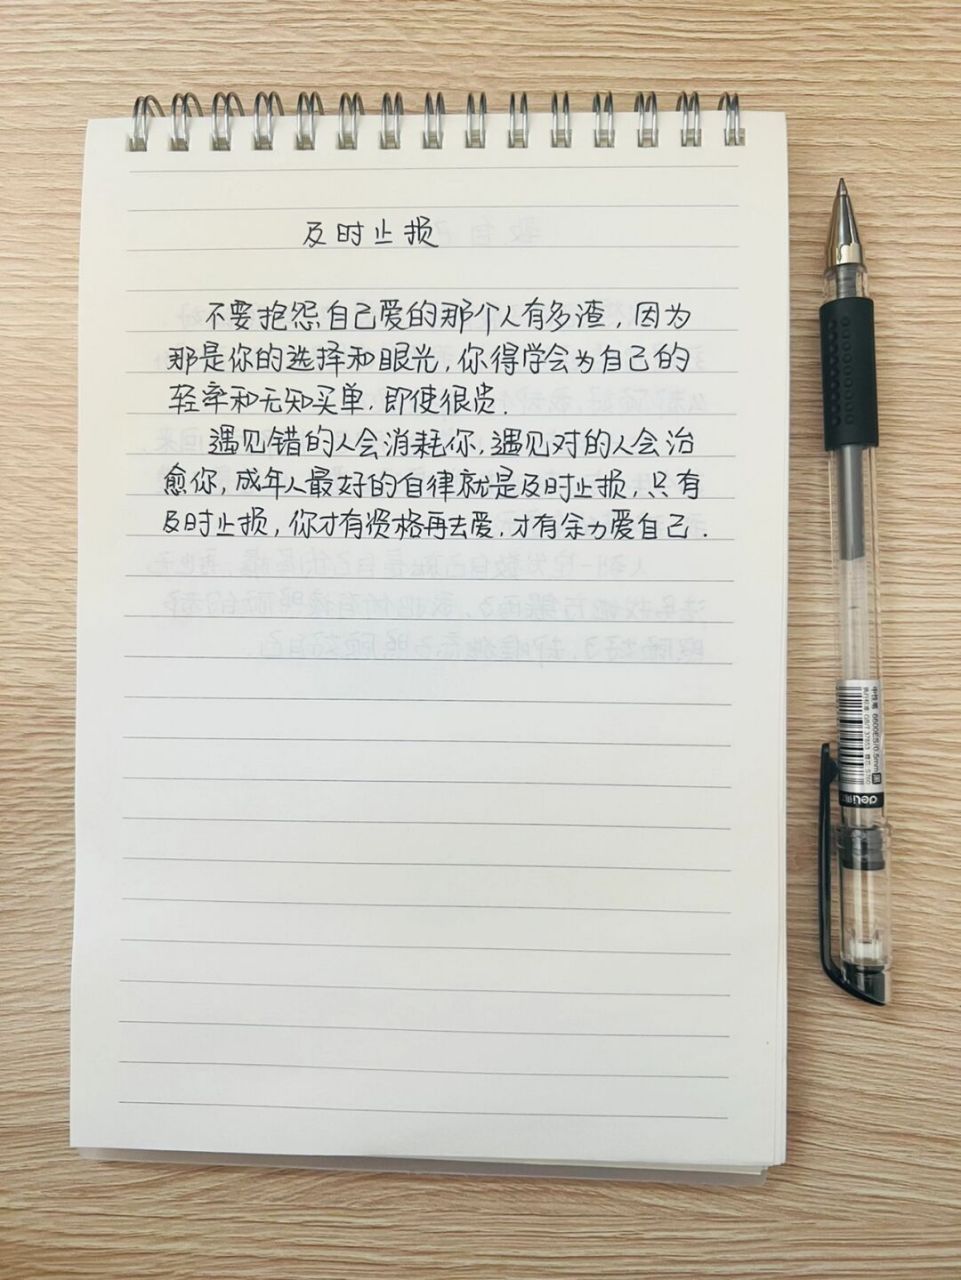 及时止损
不要抱怨自己爱的那个人有多渣，因为
那是你的选择和眼光，你得学会为自己的
轻率和无知买单，即使很贵.
遇见错的人会消耗你，遇见对的人会治
愈你，成年人最好的自律就是及时止损，只有
及时止损，你才有资格再去爱，才有余力爱自己.
deli